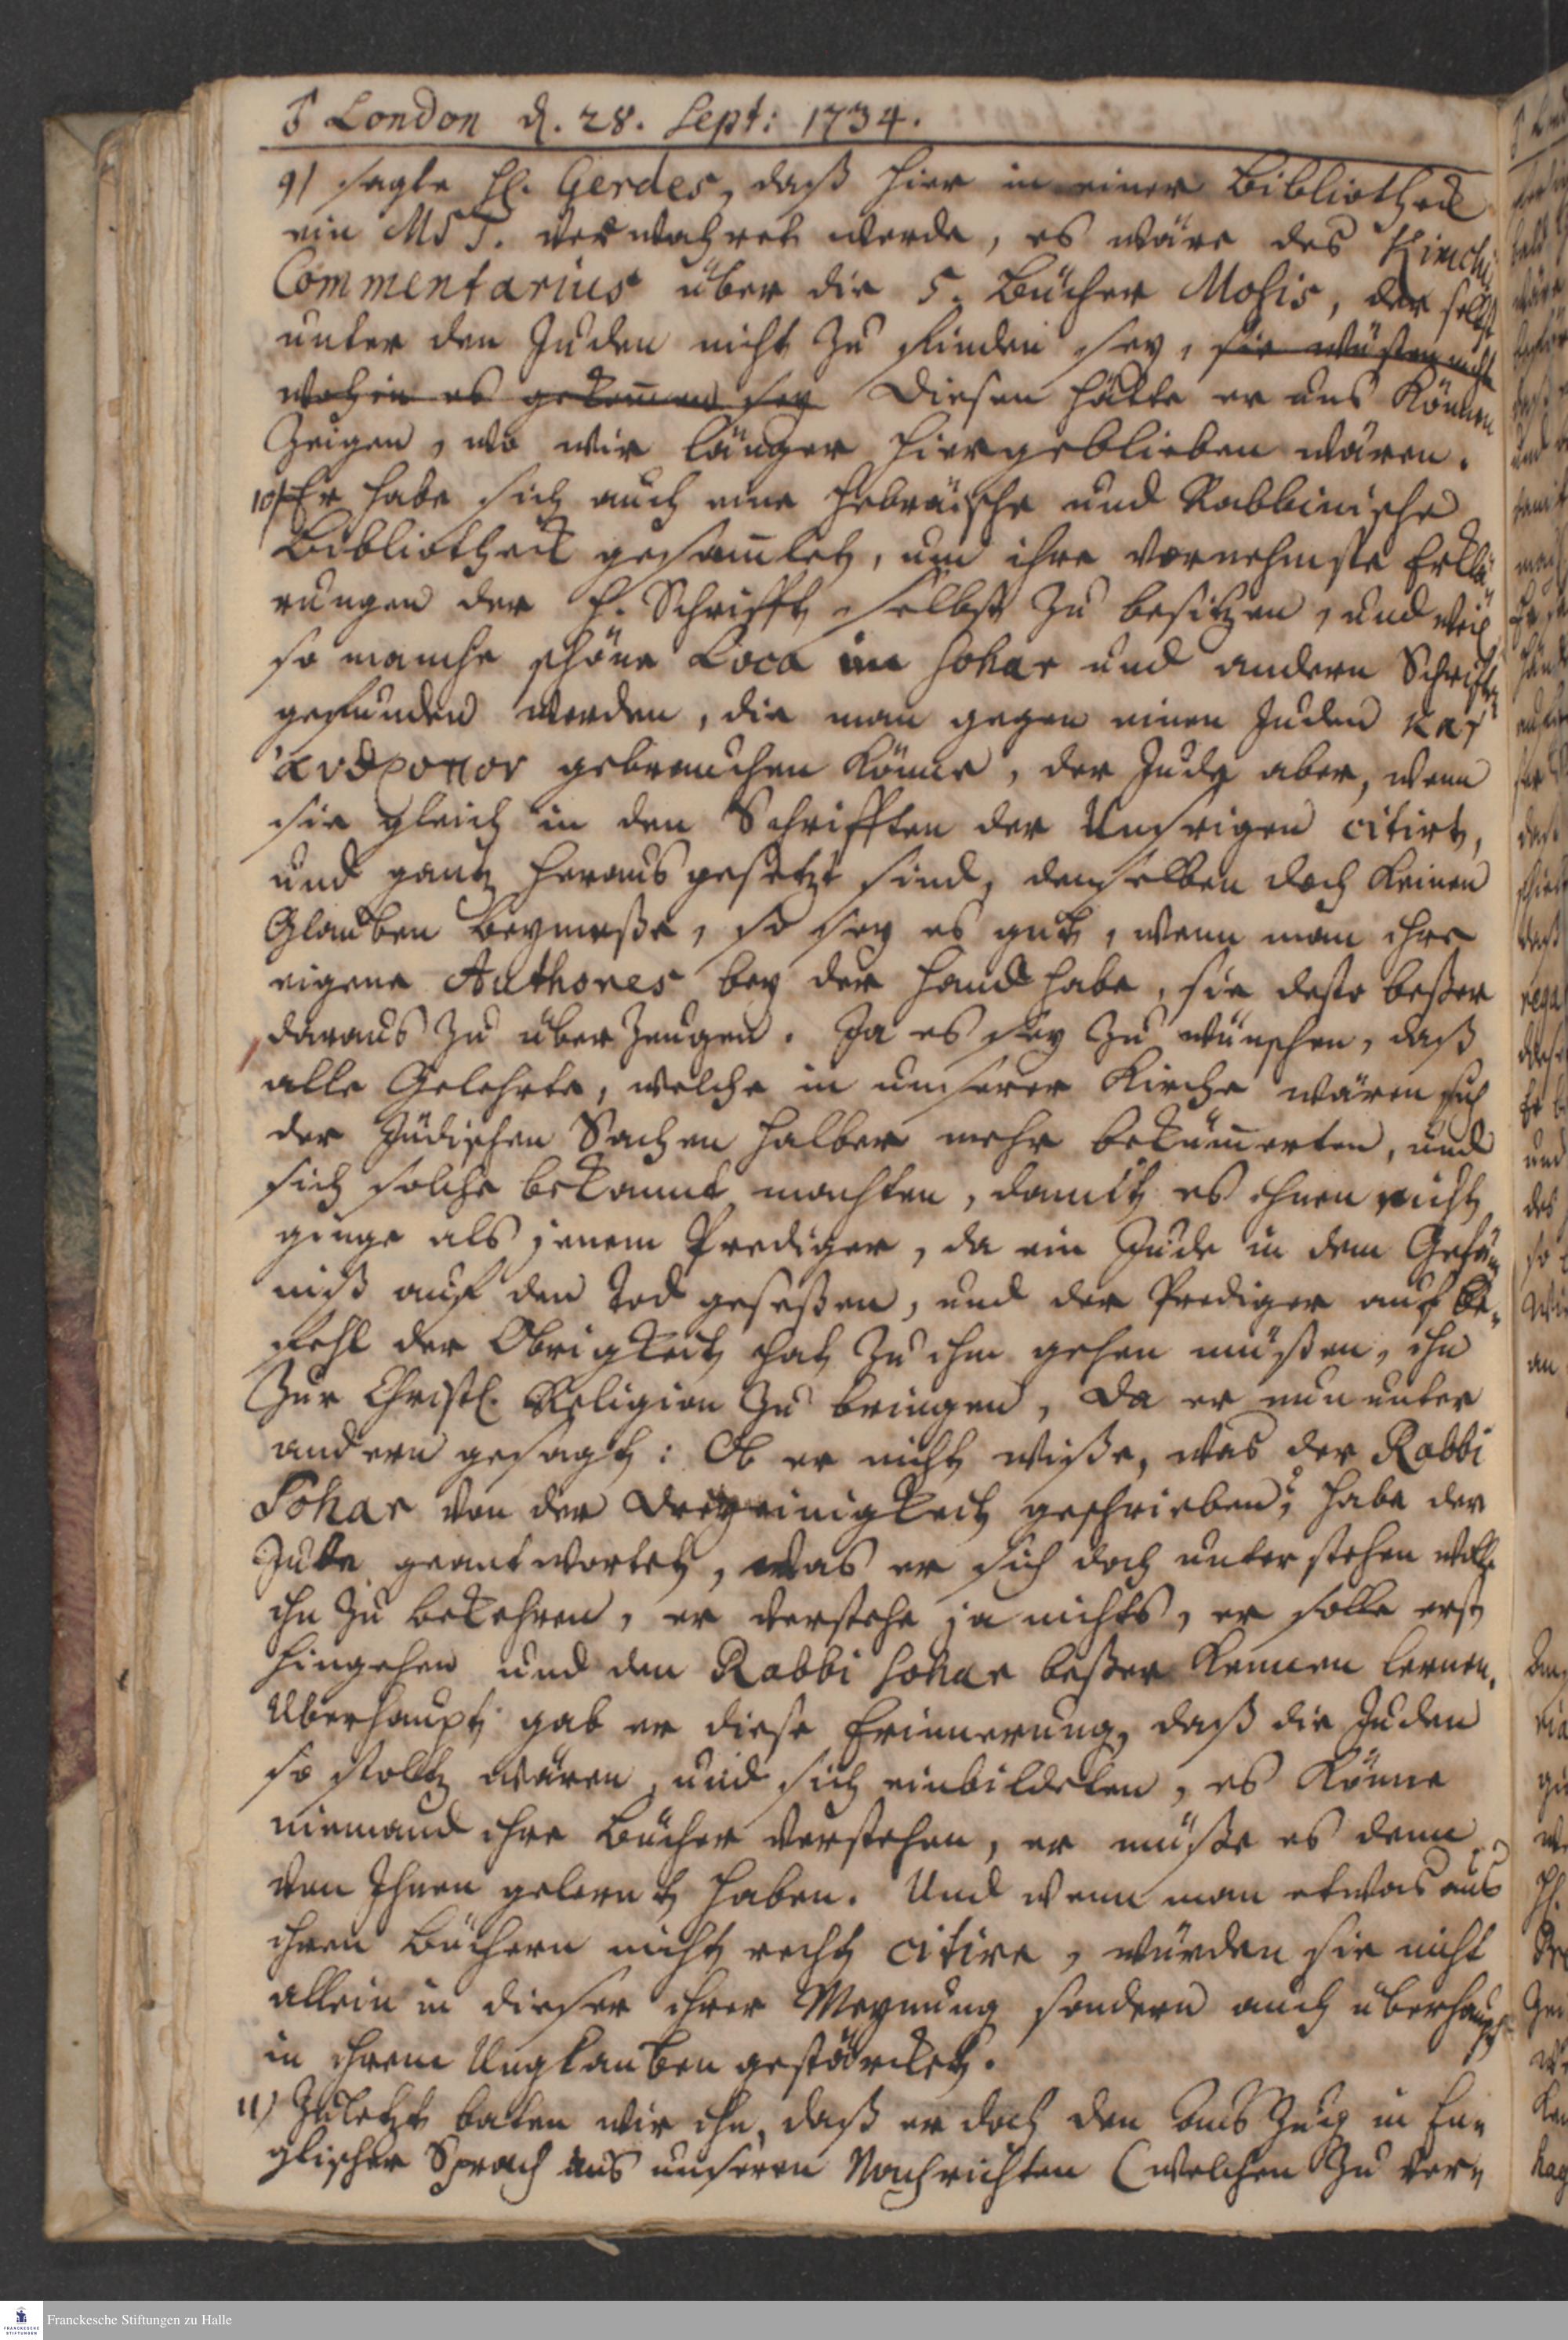 ♄ London d. 28. Sept: 1734.
9) sagte H. Gerdes, daß hier in einer Bibliotheck
ein MST. verwahret werde, es wäre des Kimchi
Commentarius über die 5. Bücher Mosis, der selbst
unter den Juden nicht zu finden sey, sie wüsten nicht
wohin es gekom̄en sey Diesen hätte er uns können
zeigen, wo wir länger hiergeblieben wären.
10) Er habe sich auch eine Hebräische und Rabbinische
Bibliotheck gesam̄let, um ihre vornehmste Erklä-
rungen der H. Schrifft selbst zu besitzen, und weil
so manche schöne Loca im Sohar und andern Schrifften
gefunden werden, die man gegen einen Juden κατ᾽
ἄνθρωπον gebrauchen könne, der Jude aber, wenn
sie gleich in den Schrifften der Unsrigen citirt,
und gantz herausgesetzt sind, denselben doch keinen
Glauben beymeße, so sey es gut, wenn man ihre
eigene Authores bey der Hand habe, sie desto beßer
daraus zu überzeugen. Ja es sey zu wünschen, daß
alle Gelehrte, welche in unserer Kirche wären sich
der Jüdischen Sachen halber mehr beküm̄erten, und
sich solche bekannt machten, damit es ihnen nicht
ginge als jenem Prediger, da ein Jude in dem Gefäng
niß auf den Tod geseßen, und der Prediger auf Be-
fehl der Obrigkeit hat zu ihm gehen müßen, ihn
zur Christl. Religion zu bringen, Da er nun unter
andern gesagt: Ob er nicht wiße, was der Rabbi
Sohar von der Dreyeinigkeit geschrieben; habe der
Jude geantwortet, was er sich doch unterstehen wolle
ihn zu bekehren, er verstehe ja nichts, er solle erst
hingehen und den Rabbi Sohar beßer kennen lernen.
Uberhaupt gab er diese Erinnerung, daß die Juden
so stoltz wären, und sich einbildeten, es könne
niemand ihre Bücher verstehen, er müße es denn
von Ihnen gelernt haben. Und wenn man etwas aus
ihren Büchern nicht recht citire, würden sie nicht
allein in dieser ihrer Meynung sondern auch überhaupt
in ihrem Unglauben gestärcket.
11) Zuletzt baten wir ihn, daß er doch den Auszug in En-
glischer Sprach aus unseren Nachrichten (welchen zu ver-
Franckesche Stiftungen zu Halle